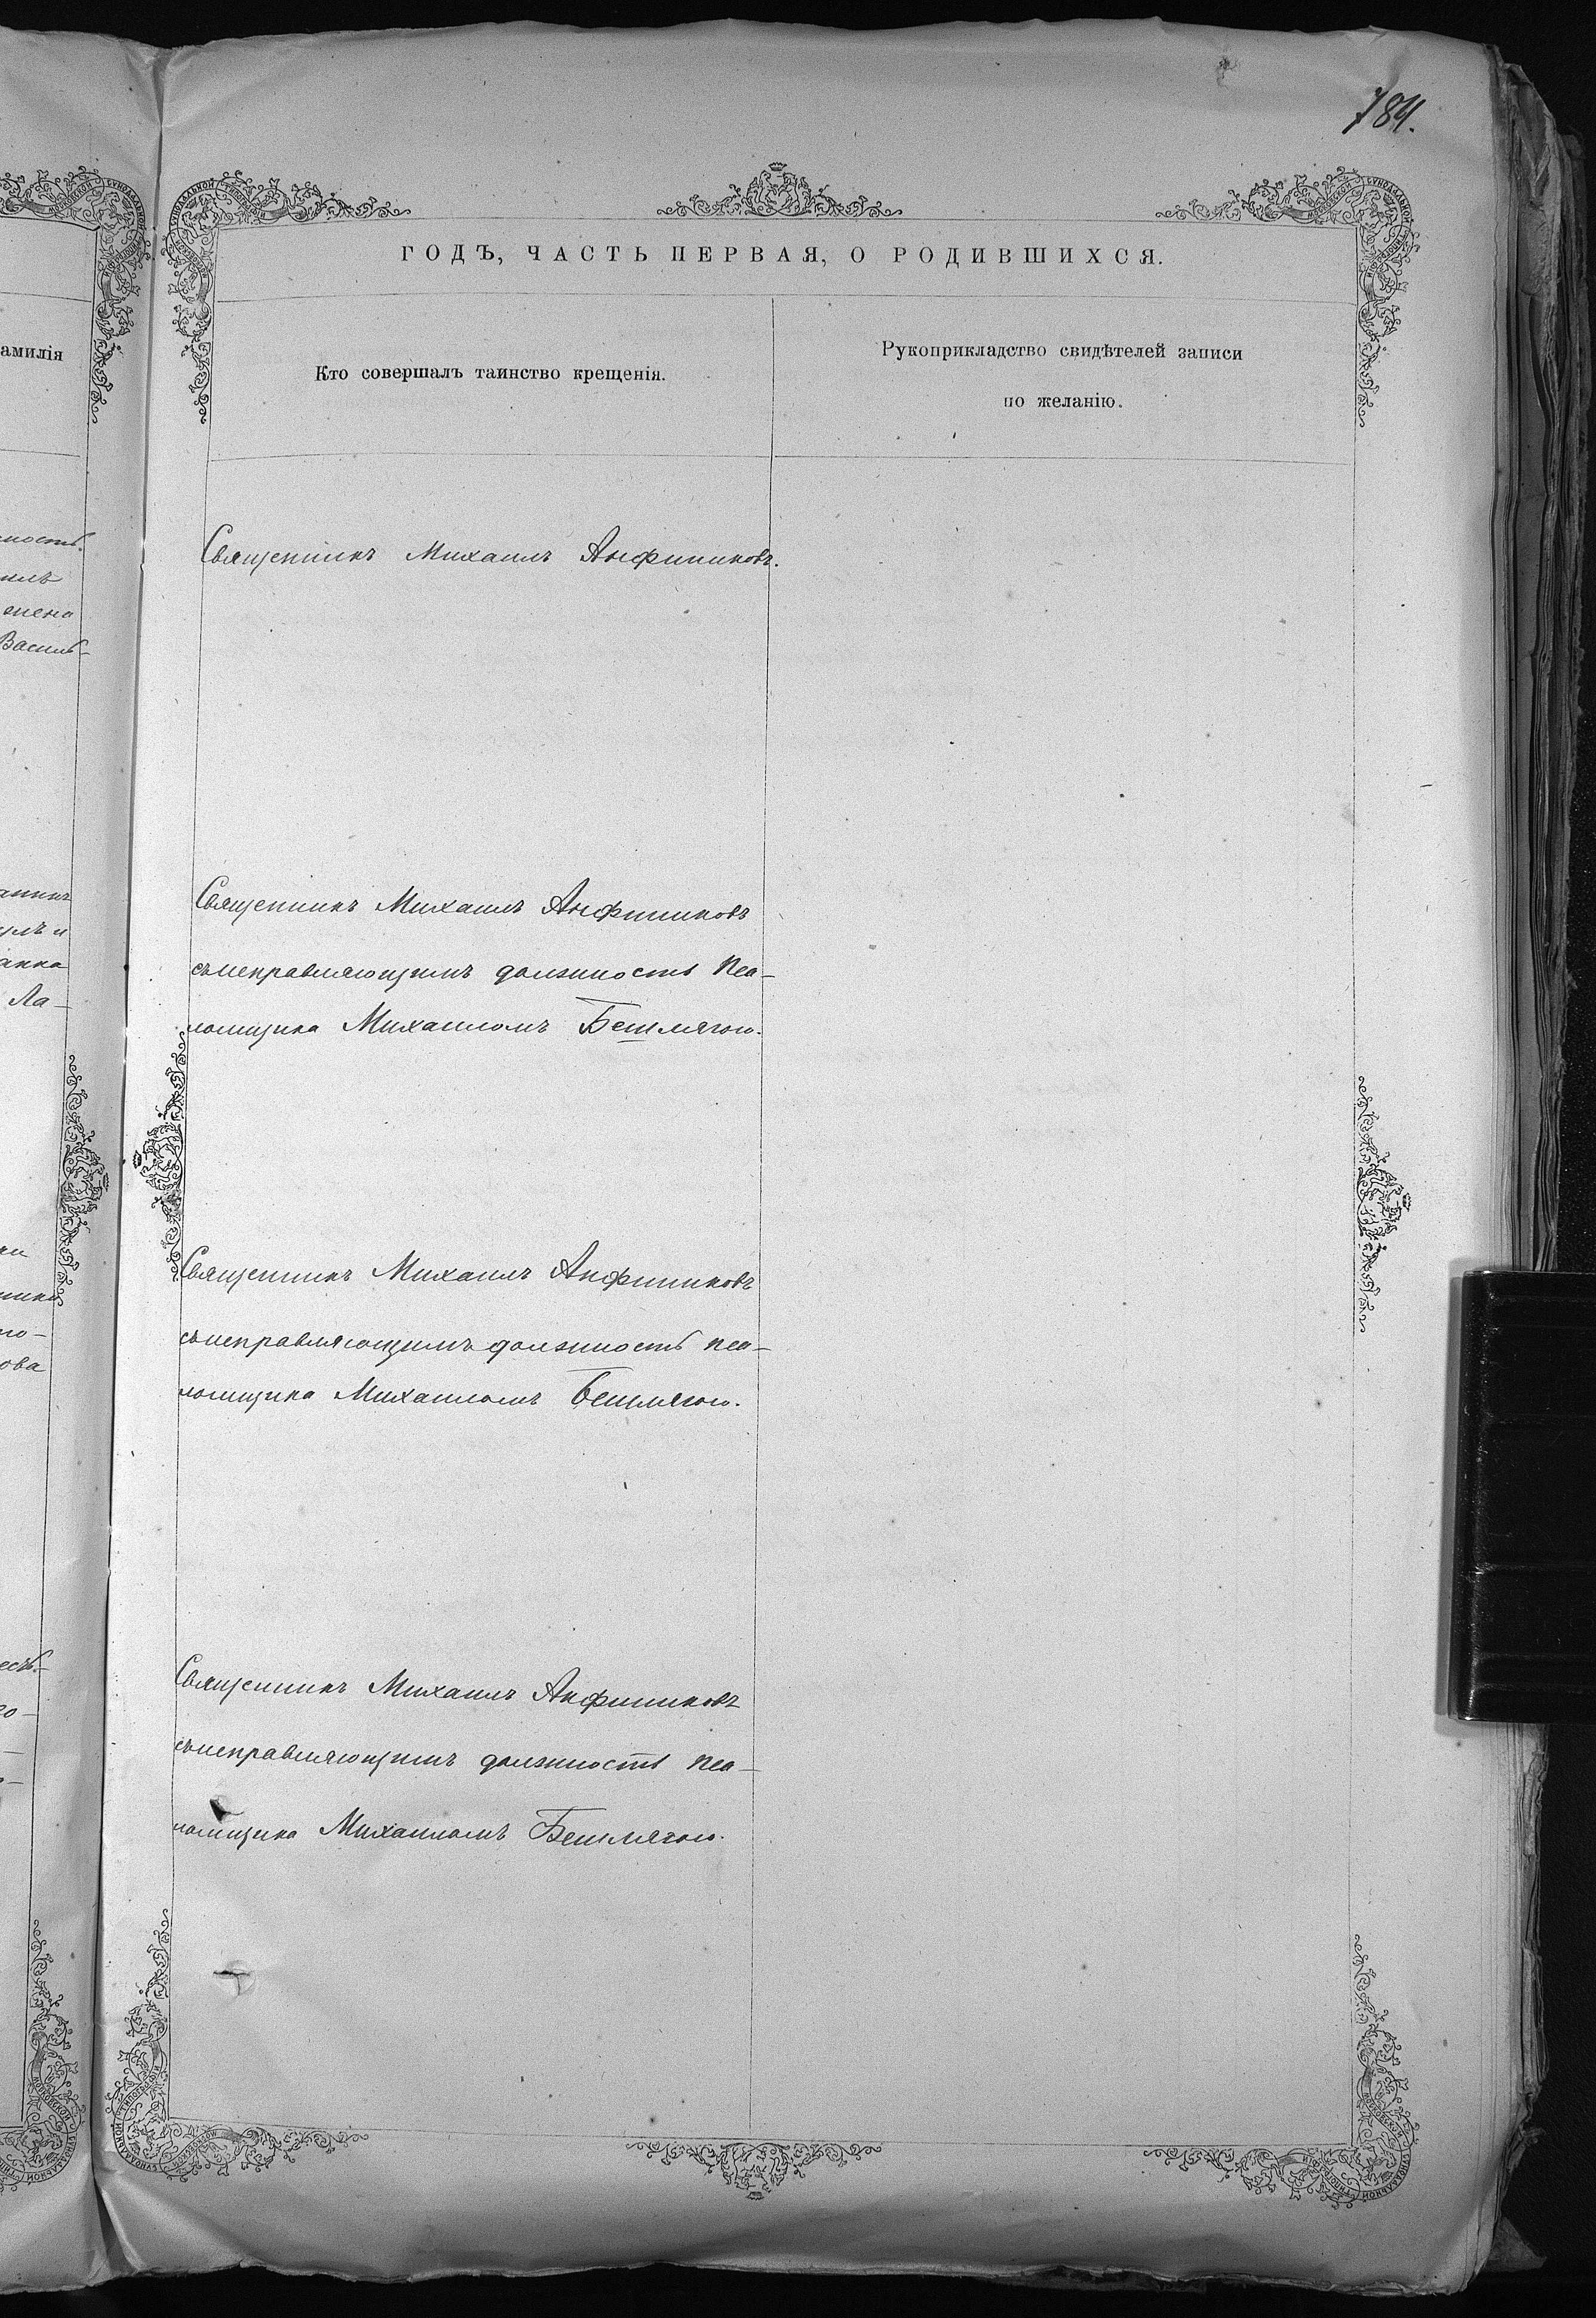 784.
ГОДЪ, ЧАСТЬ ПЕРВАЯ, О РОДИВШИХСЯ.
амилія
Кто совершалъ таинство крещенія.
Рукоприкладство свидѣтелей записи
по желанію.
Священникъ Михаилъ Анфиниковъ.
Василь-
Священникъ Михаилъ Анфиниковъ
съисправляющимъ должность Пса-
ломщика Михаиломъ
Ла-
Священникъ Михаилъ Анфиниковъ
съисправляющимъ должность пса-
ломщика Михаиломъ
ова
Священникъ Михаилъ Анфиниковъ
съисправляющимъ должность пса-
ломщика Михаиломъ